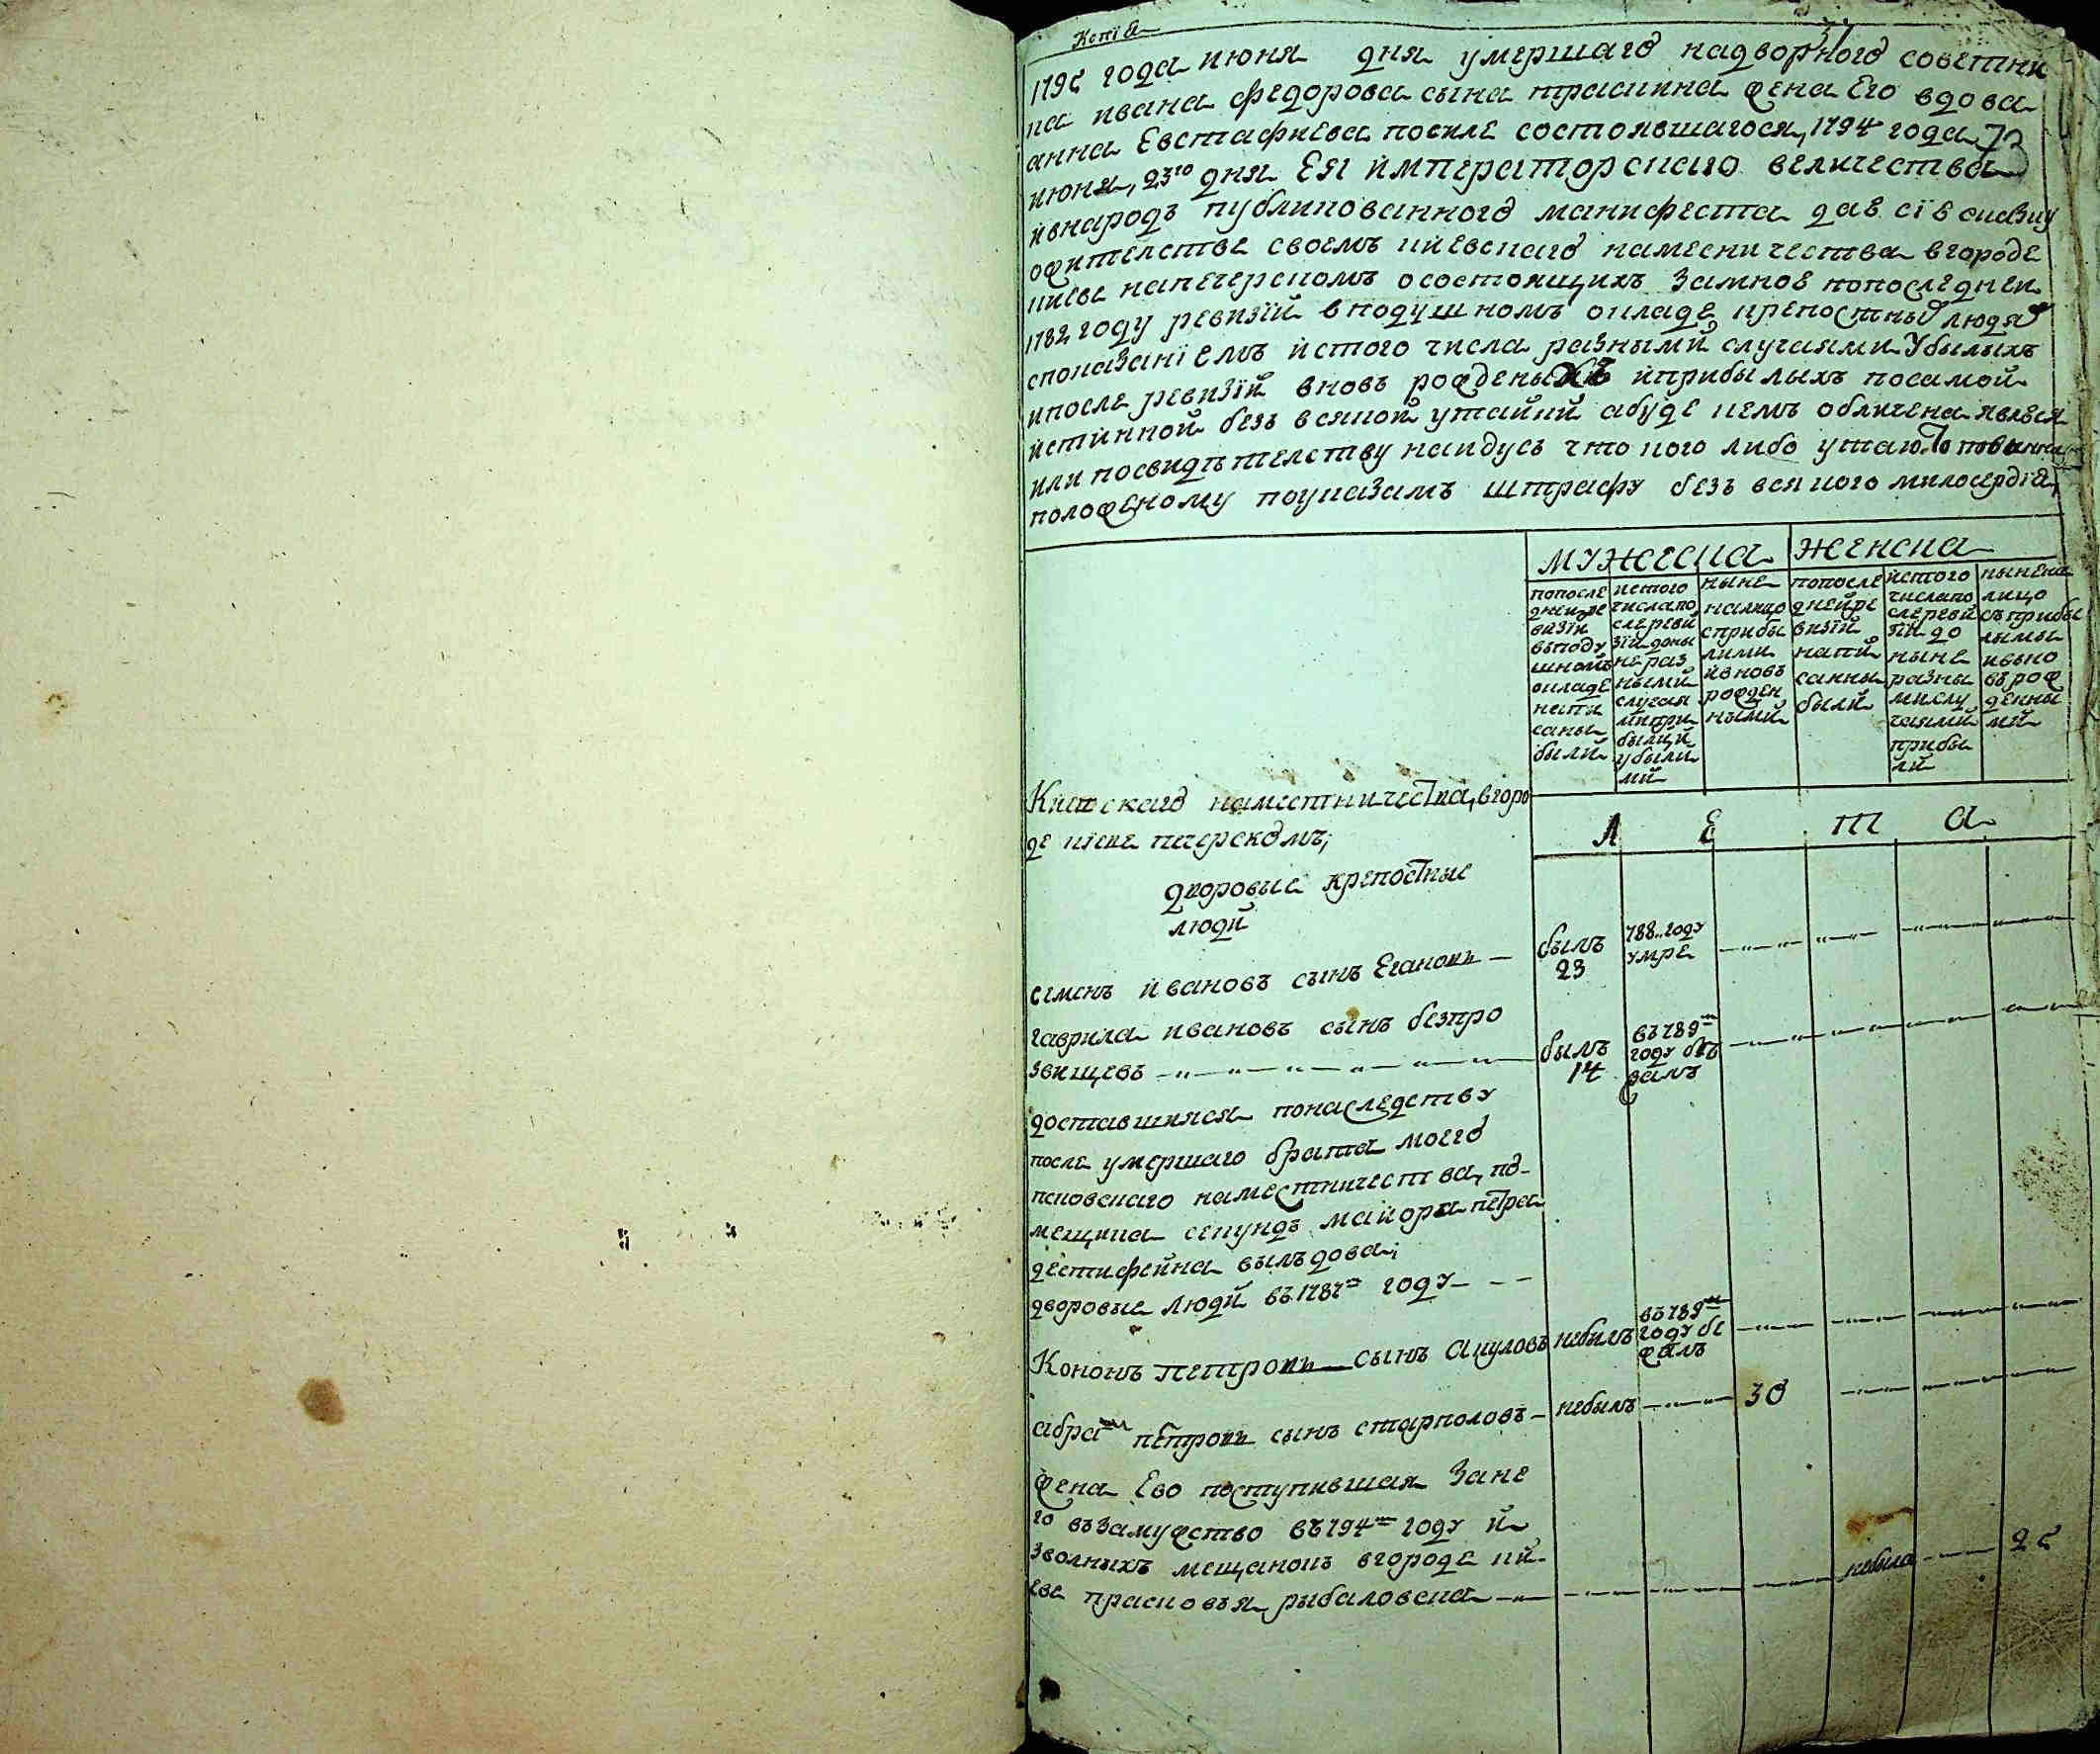 Копіѧ
37
1795 года июня дня умершаго надворного советни
ка ивана федорова сына жена Его вдова
анна Евстафиева после состоявшагося, 1794 года
73
июня, 23го дня Ея императорскаго величества
ивнародъ публикованного манифеста дав сіѣ сказку
ожителстве своемъ киевскаго намесничества вгороде
киеве напечерскомъ осостоящихъ замное попоследнеи
1782 году ревизіи вподушномъ окладе крепостныѣ людя
споказаніемъ истого числа разными случаями убылыхъ
ипосле ревизіи вновь рожденыхъ иприбылыхъ посамой
истинной безъ всякой утайки абуде кемъ обличена явлюся
или посвидѣтелству наидусь что кого либо утаю то повинна
положеному поуказамъ штрафу безъ всякого милосердія
мужеска женска
попоследнеире визіи въподу шномъ окладе написаны были
истого числапо слереви зіи доны не раз ными случая мипри былии убыли ми
ныне налицо сприбы лими ивновъ рожден ными
попосле днейре визіи напи санны были
истого числапо слереви зіи до ныне разны мислу чаями прибы ли
нынена лицо съприбы лыми ивно въ рож денны ми
Киевскаго наместничества, вгоро
Л Е т а
де кіеве печерскомъ;
дворовые крепостные
люди
семенъ ивановъ сынъ — былъ 23 788. году умре
гаврила ивановъ сынъ безпро
звищевъ былъ 14 въ789м году бежалъ
доставшияся понаследству
после умершаго брата моего
псковскаго наместничества, по-
мещика секундъ майора петра
въ1787м году
дворовые люди
Кононъ петровъ сынъ Акуловъ небылъ въ789м году бежалъ
абрам петровъ сынъ старполовъ — небылъ 30
жена Ево поступившая зане
го възамужство въ794м году и
зволныхъ мещанокъ вгороде ки-
еве прасковья рыбаловска небыла 25